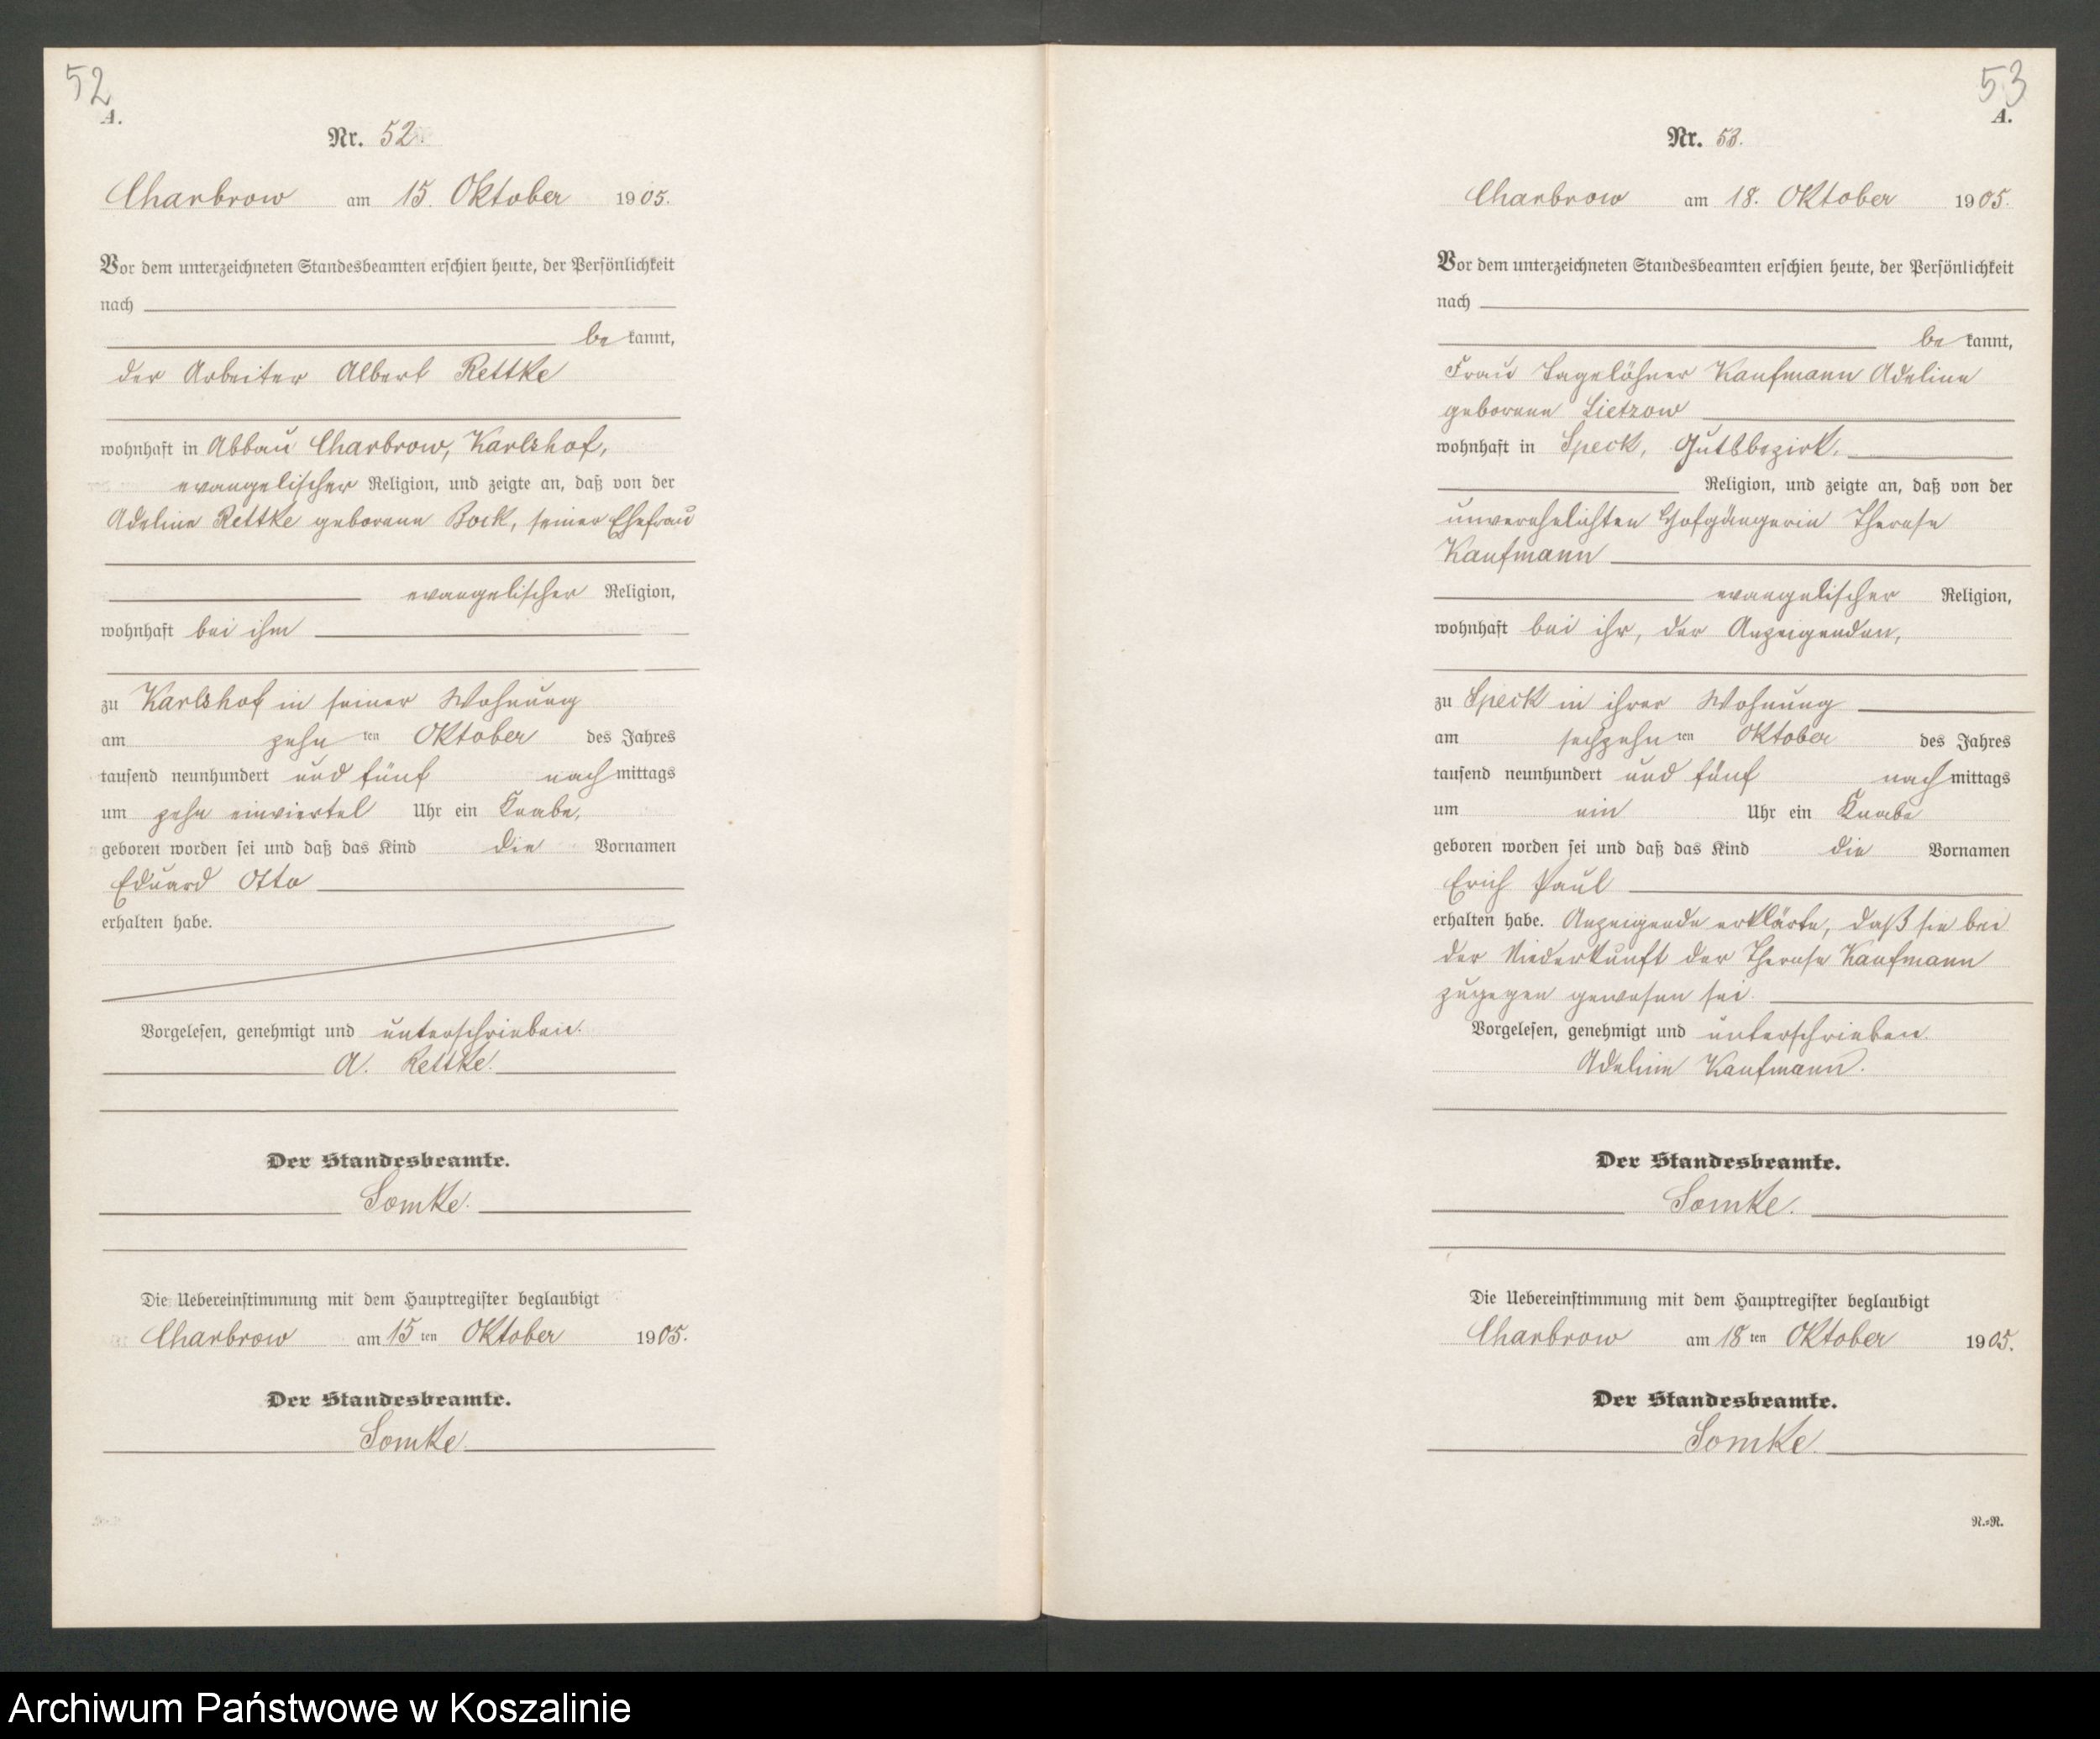 52
A.
Nr. 52.
Charbrow am 15. Oktober 1905.
Vor dem unterzeichneten Standesbeamten erschien heute, der Persönlichkeit
nach
be kannt,
der Arbeiter Albert Rettke
wohnhaft in Abbau Charbrow, Karlshof,
evangelischer Religion, und zeigte an, daß von der
Adeline Rettke geborene Bock, seiner Ehefrau
evangelischer Religion,
wohnhaft bei ihm
zu Karlshof in seiner Wohnung
am zehn ten Oktober des Jahres
tausend neunhundert und fünf nach mittags
um zehn einviertel Uhr ein Knabe,
geboren worden sei und daß das Kind die Vornamen
Eduard Otto
erhalten habe.
Vorgelesen, genehmigt und unterschrieben.
A. Rettke.
Der Standesbeamte.
Somke.
Die Uebereinstimmung mit dem Hauptregister beglaubigt
Charbrow am 15 ten Oktober 1905.
Der Standesbeamte.
Somke.
53
A.
Nr. 53.
Charbrow am 18. Oktober 1905.
Vor dem unterzeichneten Standesbeamten erschien heute, der Persönlichkeit
nach
be kannt,
Frau Tagelöhner Kaufmann Adeline
geborene Lietzow
wohnhaft in Speck, Gutsbezirk,
Religion, und zeigte an, daß von der
unverehelichten Hofgängerin Therese
Kaufmann
evangelischer Religion,
wohnhaft bei ihr, der Anzeigenden,
zu Speck in ihrer Wohnung
am sechzehn ten Oktober des Jahres
tausend neunhundert und fünf nach mittags
um ein Uhr ein Knabe
geboren worden sei und daß das Kind die Vornamen
Erich Paul
erhalten habe. Anzeigende erklärte, daß sie bei
der Niederkunft der Therese Kaufmann
zugegen gewesen sei.
Vorgelesen, genehmigt und unterschrieben.
Adeline Kaufmann.
Der Standesbeamte.
Somke.
Die Uebereinstimmung mit dem Hauptregister beglaubigt
Charbrow am 18 ten Oktober 1905.
Der Standesbeamte.
Somke.
N.=N.
Archiwum Państwowe w Koszalinie